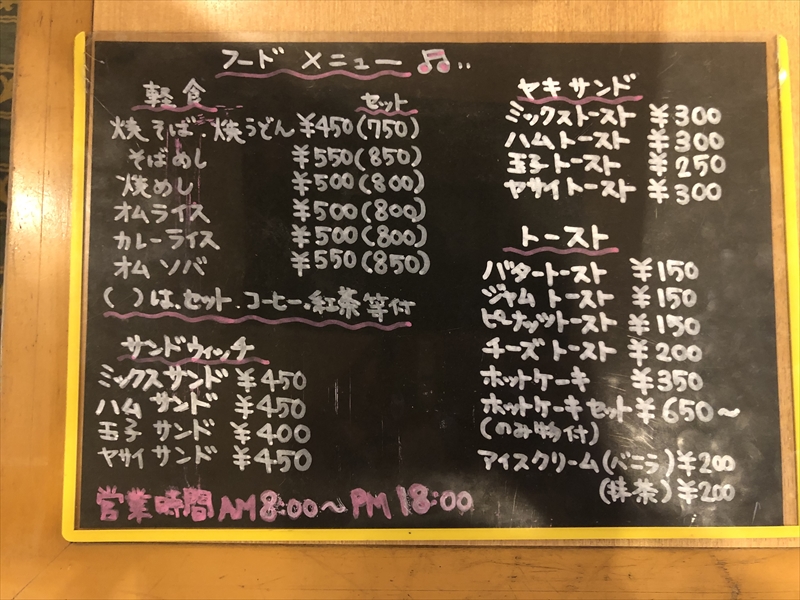 フード メニュー ♫..
軽食 セット
焼そば・焼うどん ¥450(750)
そばめし ¥550(850)
焼めし ¥500(800)
オムライス ¥500(800)
カレーライス ¥500(800)
オムソバ ¥550(850)
( )は、セット、コーヒー、紅茶等付
サンドウィッチ
ミックスサンド ¥450
ハムサンド ¥450
玉子サンド ¥400
ヤサイサンド ¥450
ヤキサンド
ミックストースト ¥300
ハムトースト ¥300
玉子トースト ¥250
ヤサイトースト ¥300
トースト
バタートースト ¥150
ジャムトースト ¥150
ピーナッツトースト ¥150
チーズトースト ¥200
ホットケーキ ¥350
ホットケーキセット ¥650〜
(のみ物付)
アイスクリーム(バニラ) ¥200
(抹茶) ¥200
営業時間 AM8:00〜PM18:00